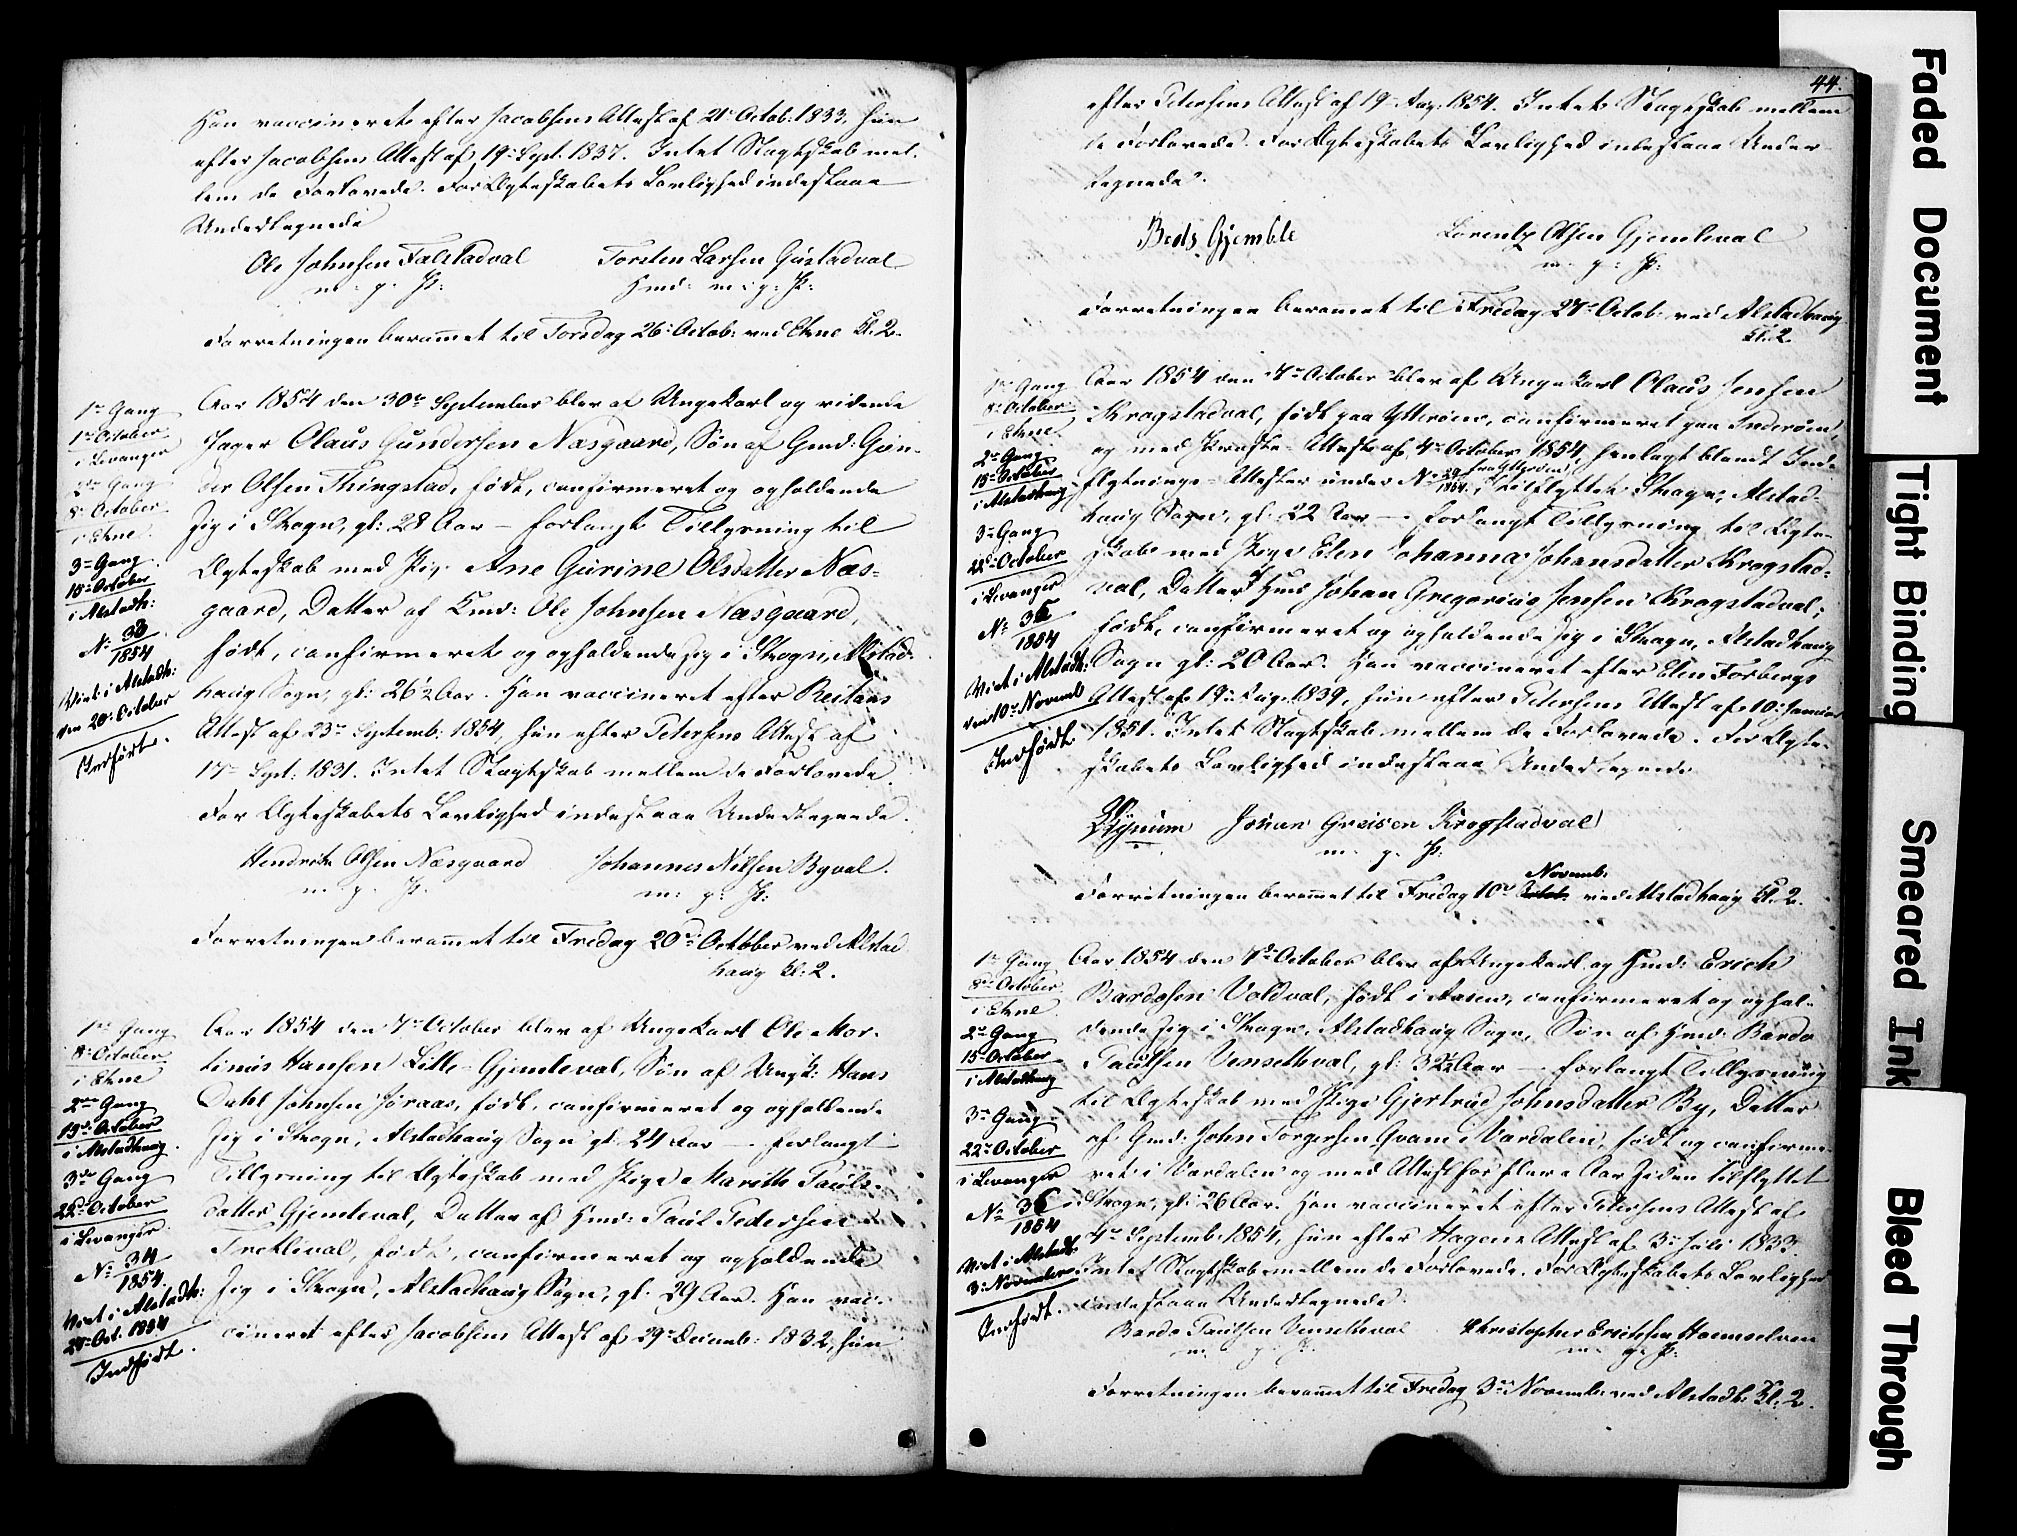 Han vaccineret efter Jacobsens Attest af 21de Octob: 1833, hun
efter Jacobsens Attest af 19de Sept. 1837. Intet Slagtskab mel-
lem de Forlovede. For Ægteskabets Lovlighed indestaae
Undertegnede
Ole Johnsen Falstadval Torsten Larsen Gustadval
m. p. P: Hmd: m: p: P:
Forretningen berammet til Torsdag 26de Octob: ved Ekne Kl. 2.
1ste Gang
1ste October
i Levanger
2den Gang
8de October
i Ekne
3die Gang
15de October
i Alstadh:
No 33
1854
Viet i Alstadh:
den 20de October
Indført.
Aar 1854 den 30te September blev af Ungekarl og ridende
Jæger Olaus Gundersen Næsgaard, Søn af Gmd: Gun-
der Olsen Thingstad, født, confirmeret og opholdende
sig i Skogn, gl: 28 Aar – forlangt Tillysning til
Ægteskab med Pige Ane Gurine Olsdatter Næs-
gaard, Datter af Hmd: Ole Johnsen Næsgaard,
født, confirmeret og opholdende sig i Skogn, Alstad-
haug Sogn, gl: 26½ Aar. Han vaccineret efter Reitans
Attest af 23de Septemb: 1854, hun efter Petersens Attest af
17de Sept: 1831. Intet Slagtskab mellem de Forlovede.
For Ægteskabets Lovlighed indestaae Undertegnede.
Hendrik Olsen Næsgaard Johannes Nilsen Byval.
m. p. P. m: p: P:
Forretningen berammet til Fredag 20de October ved Alstad-
haug Kl: 2.
1ste Gang
8de October
i Ekne
2den Gang
15de October
i Alstadhaug.
3die Gang
22de October
i Levanger
No 34
1854.
Viet i Alstadh:
27de Oct. 1854
Indført.
Aar 1854 den 7de October blev af Ungekarl Ole Mor-
tinus Hansen Lille-Gjemleval, Søn af Ungk: Hans
Dahl Johnsen Joraas, født, confirmeret og opholdende
sig i Skogn, Alstadhaug Sogn gl: 24 Aar – forlangt
Tillysning til Ægteskab med Pige Marith Pauls-
datter Gjemleval, Datter af Hmd: Paul Pedersen
Tretlival, født, confirmeret og opholdende
sig i Skogn, Alstadhaug Sogn, gl. 29 Aar. Han vac-
cineret efter Jacobsens Attest af 29de Decemb: 1832, hun
44.
efter Petersens Attest af 19de Aug: 1854. Intet Slagtskab mellem
de Forlovede. For Ægteskabets Lovlighed indestaae Under-
tegnede.
Gjemble Lorentz Olsen Gjemleval
m. p: P:
Forretningen berammet til Fredag 27de Octob: ved Alstadhaug
Kl. 2.
1ste Gang
8de October
i Ekne
2den Gang
15de October
i Alstadhaug
3die Gang
22de October
i Levanger
No 35
1854
Viet i Alstadh:
den 10de Novemb
Indført
Aar 1854 den 7de October blev af Ungekarl Olaus Jensen
Kragstadval, født paa Ytterøen, confirmeret paa Inderøen,
og med Præste-Attest af 4de October 1854, henlagt blandt Ind-
flytnings-Attester under No 1854, fra Ytterøen tilflyttet Skogn, Alstad-
haug Sogn, gl: 22 Aar – forlangt Tillysning til Ægte-
skab med Pige Elen Johanna Johansdatter Kragstad-
val, Datter af Hmd Johan Gregorius Jensen Kragstadval,
født, confirmeret og opholdende sig i Skogn, Alstadhaug
Sogn gl: 20 Aar. Han vaccineret efter Elen Forbergs
Attest af 19de Aug. 1839, hun efter Petersens Attest af 10de Januar
1851. Intet Slagtskab mellem de Forlovede. For Ægte-
skabets Lovlighed indestaae Undertegnede
Johan Greisen Krogstadval
m. p. P:
Forretningen berammet til Fredag 10de Novemb: ved Alstadhaug Kl. 2.
1ste Gang
8de October
i Ekne
2den Gang
15de October
i Alstadhaug
3die Gang
22de October
i Levanger
No 36
1854
Viet i Alstadh:
3de November
Indført.
Aar 1854 den 7de October blev af Ungekarl og Hmd: Erich
Bardosen Voldval, født i Aasen, confirmeret og ophol-
dende sig i Skogn, Alstadhaug Sogn, Søn af Hmd: Bardo
Paulsen Vensethval, gl: 32½ Aar – forlangt Tillysning
til Ægteskab med Pige Gjertrud Johnsdatter By, Datter
af Gmd: John Torgersen Qvam i Værdalen, født og confirme-
ret i Værdalen og med Attest for flere Aar siden tilflyttet
Skogn, gl: 26 Aar. Han vaccineret efter Petersens Attest af
4de Septemb: 1854, hun efter Hagens Attest af 3die Juli 1833.
Intet Slagtskab mellem de Forlovede. For Ægteskabets Lovlighed
indestaae Undertegnede.
Bardo Paulsen Vensethval Christopher Erichsen
m. p. P. m. p. P:
Forretningen berammet til Fredag 3die Novemb: ved Alstadh: Kl: 2.
Faded Document
Tight Binding
Smeared Ink
Bleed Through